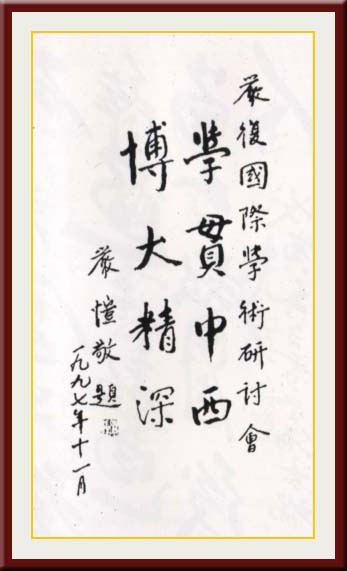 嚴復國際學術研討會
學貫中西
博大精深
嚴愷敬題
一九九七年十一月